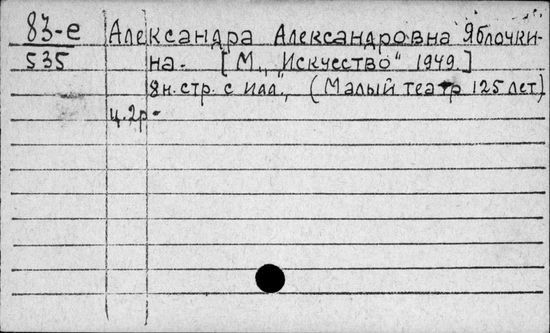 83-е
535
Александра Александровна Яблочки-
на. [М., "Искусство" 1949.]
8н. стр. с илл., (Малый театр 125 лет)
ц. 2р-